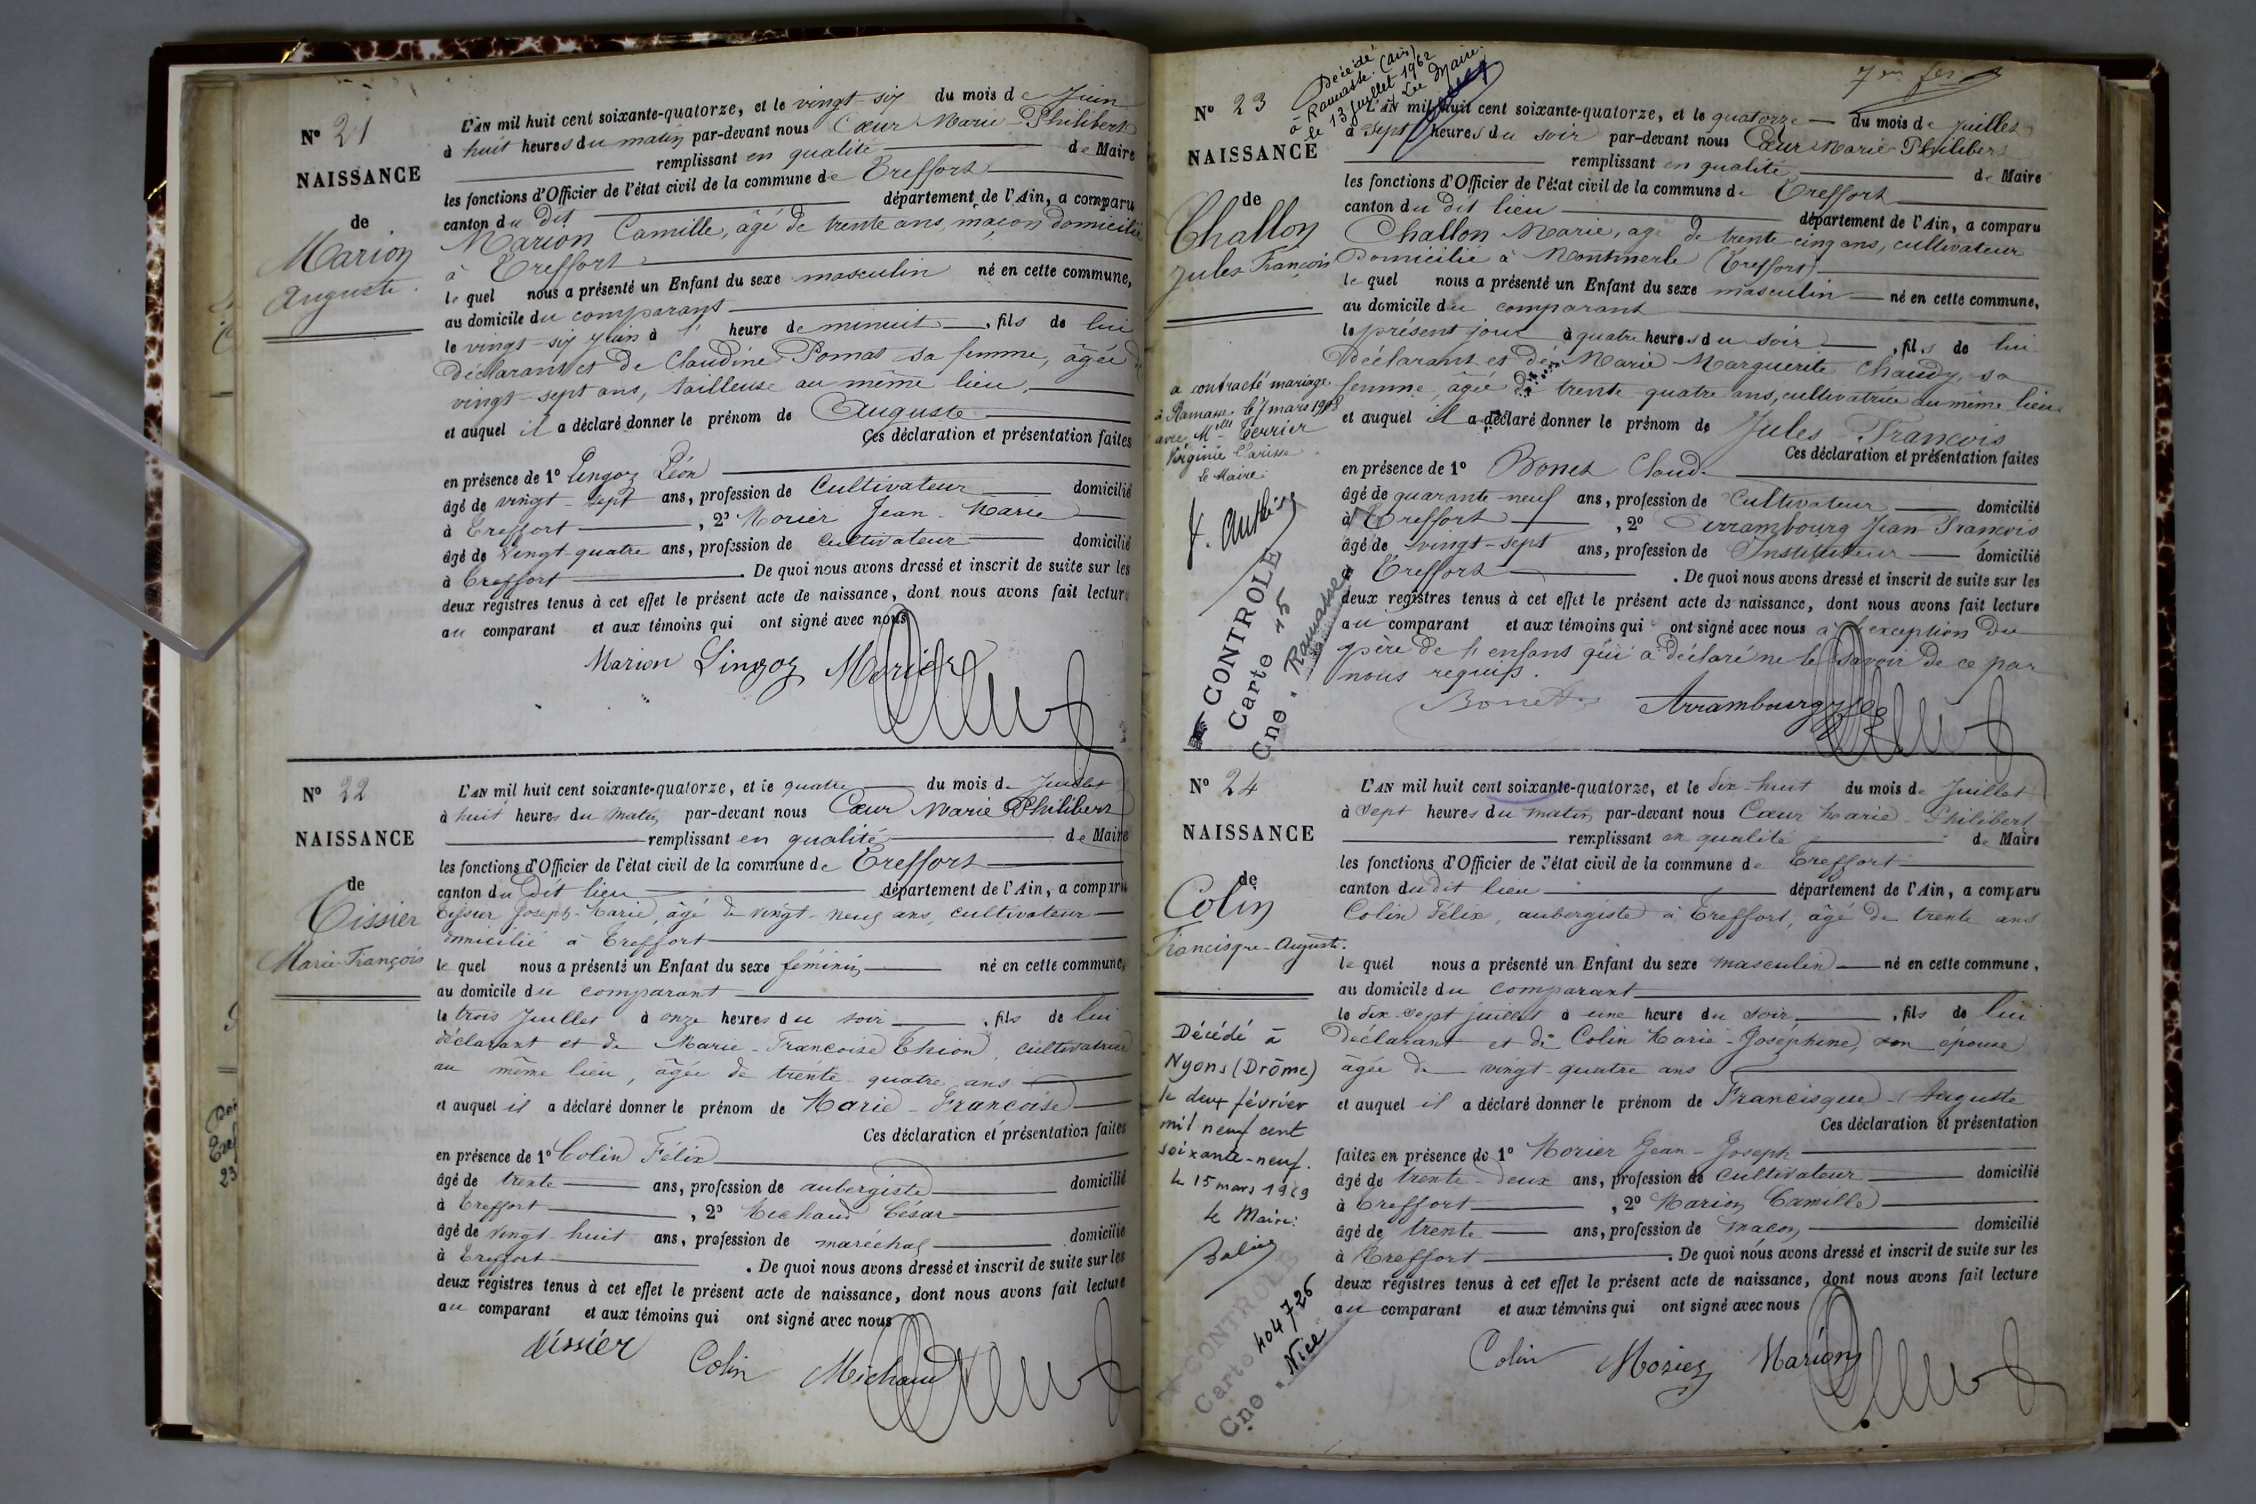 N° 21
NAISSANCE
de
Marion
Auguste.
L'AN mil huit cent soixante-quatorze, et le vingt-six du mois de Juin
à huit heures du matin par-devant nous Cœur Marie Philibert
remplissant en qualité de Maire
les fonctions d'Officier de l'état civil de la commune de Treffort
canton du dit département de l'Ain, a comparu
Marion Camille, âgé de trente ans, maçon domicilié
à Treffort
le quel nous a présenté un Enfant du sexe masculin né en cette commune,
au domicile du comparant
le vingt-six juin à heure de minuit, fils de lui
déclarant et de Claudine Pomat sa femme, âgée de
vingt-sept ans, tailleuse au même lieu,
et auquel il a déclaré donner le prénom de Auguste
Ces déclaration et présentation faites
en présence de 1° Léon
âgé de vingt-sept ans, profession de Cultivateur domicilié
à Treffort, 2° Morier Jean-Marie
âgé de vingt-quatre ans, profession de cultivateur domicilié
à Treffort. De quoi nous avons dressé et inscrit de suite sur les
deux registres tenus à cet effet le présent acte de naissance, dont nous avons fait lecture
au comparant et aux témoins qui ont signé avec nous
Marion Morier
N° 22
NAISSANCE
de
Tissier
Marie-François
L'AN mil huit cent soixante-quatorze, et le quatre du mois de Juillet
à huit heures du matin par-devant nous Cœur Marie Philibert
remplissant en qualité de Maire
les fonctions d'Officier de l'état civil de la commune de Treffort
canton du dit lieu département de l'Ain, a comparu
Tissier Joseph-Marie, âgé de vingt-neuf ans, cultivateur
domicilié à Treffort
le quel nous a présenté un Enfant du sexe féminin né en cette commune,
au domicile du comparant
le trois Juillet à onze heures du soir, fils de lui
déclarant et de Marie-Françoise Thion, cultivatrice
au même lieu, âgée de trente-quatre ans
et auquel il a déclaré donner le prénom de Marie-Françoise
Ces déclaration et présentation faites
en présence de 1° Colin Félix
âgé de trente ans, profession de aubergiste domicilié
à Treffort, 2° Michaud César
âgé de vingt-huit ans, profession de maréchal domicilié
à Treffort. De quoi nous avons dressé et inscrit de suite sur les
deux registres tenus à cet effet le présent acte de naissance, dont nous avons fait lecture
au comparant et aux témoins qui ont signé avec nous
tissier Colin Michaud
Décédé
à Ramasse (Ain)
le 13 Juillet 1962
Le Maire.
N° 23
NAISSANCE
de
Challon
Jules François
a contracté mariage
à Ramasse le 7 mars 1908
avec Mlle Terrier
Virginie Clarisse
le Maire
CONTROLE
Carte 15
Cne. Ramasse
L'AN mil huit cent soixante-quatorze, et le quatorze du mois de Juillet
à sept heures du soir par-devant nous Cœur Marie Philibert
remplissant en qualité de Maire
les fonctions d'Officier de l'état civil de la commune de Treffort
canton du dit lieu département de l'Ain, a comparu
Challon Marie, agé de trente-cinq ans, cultivateur
Domicilié à Montmerle (Treffort)
le quel nous a présenté un Enfant du sexe masculin né en cette commune,
au domicile du comparant
le présent jour à quatre heures du soir, fils de lui
Déclarant et de Marie Marguerite Chaudy, sa
femme, âgée de trente-quatre ans, cultivatrice au même lieu
et auquel il a déclaré donner le prénom de Jules François
Ces déclaration et présentation faites
en présence de 1° Bonet Claude
âgé de quarante-neuf ans, profession de Cultivateur domicilié
à Treffort, 2° Arrambourg Jean François
âgé de vingt-sept ans, profession de Instituteur domicilié
à Treffort. De quoi nous avons dressé et inscrit de suite sur les
deux registres tenus à cet effet le présent acte de naissance, dont nous avons fait lecture
au comparant et aux témoins qui ont signé avec nous à l'exception du
père de l'enfant qui a déclaré ne le savoir de ce par
nous requis.
Bonet Arrambourg
N° 24
NAISSANCE
de
Colin
Francisque-Auguste.
Décédé à
Nyons (Drôme)
le deux février
mil neuf cent
soixante-neuf.
le 15 mars 1969
le Maire:
CONTROLE
Carte 404726
Cne. Nice
L'AN mil huit cent soixante-quatorze, et le dix-huit du mois de Juillet
à sept heures du matin par-devant nous Cœur Marie-Philibert
remplissant en qualité de Maire
les fonctions d'Officier de l'état civil de la commune de Treffort
canton du dit lieu département de l'Ain, a comparu
Colin Félix, aubergiste à Treffort, âgé de trente ans
le quel nous a présenté un Enfant du sexe masculin né en cette commune,
au domicile du comparant
le dix-sept juillet à une heure du soir, fils de lui
Déclarant et de Colin Marie-Joséphine, son épouse
âgée de vingt-quatre ans
et auquel il a déclaré donner le prénom de Francisque-Auguste
Ces déclaration et présentation
faites en présence de 1° Morier Jean-Joseph
âgé de trente-deux ans, profession de cultivateur domicilié
à Treffort, 2° Marion Camille
âgé de trente ans, profession de maçon domicilié
à Treffort. De quoi nous avons dressé et inscrit de suite sur les
deux registres tenus à cet effet le présent acte de naissance, dont nous avons fait lecture
au comparant et aux témoins qui ont signé avec nous
Colin Morier Marion